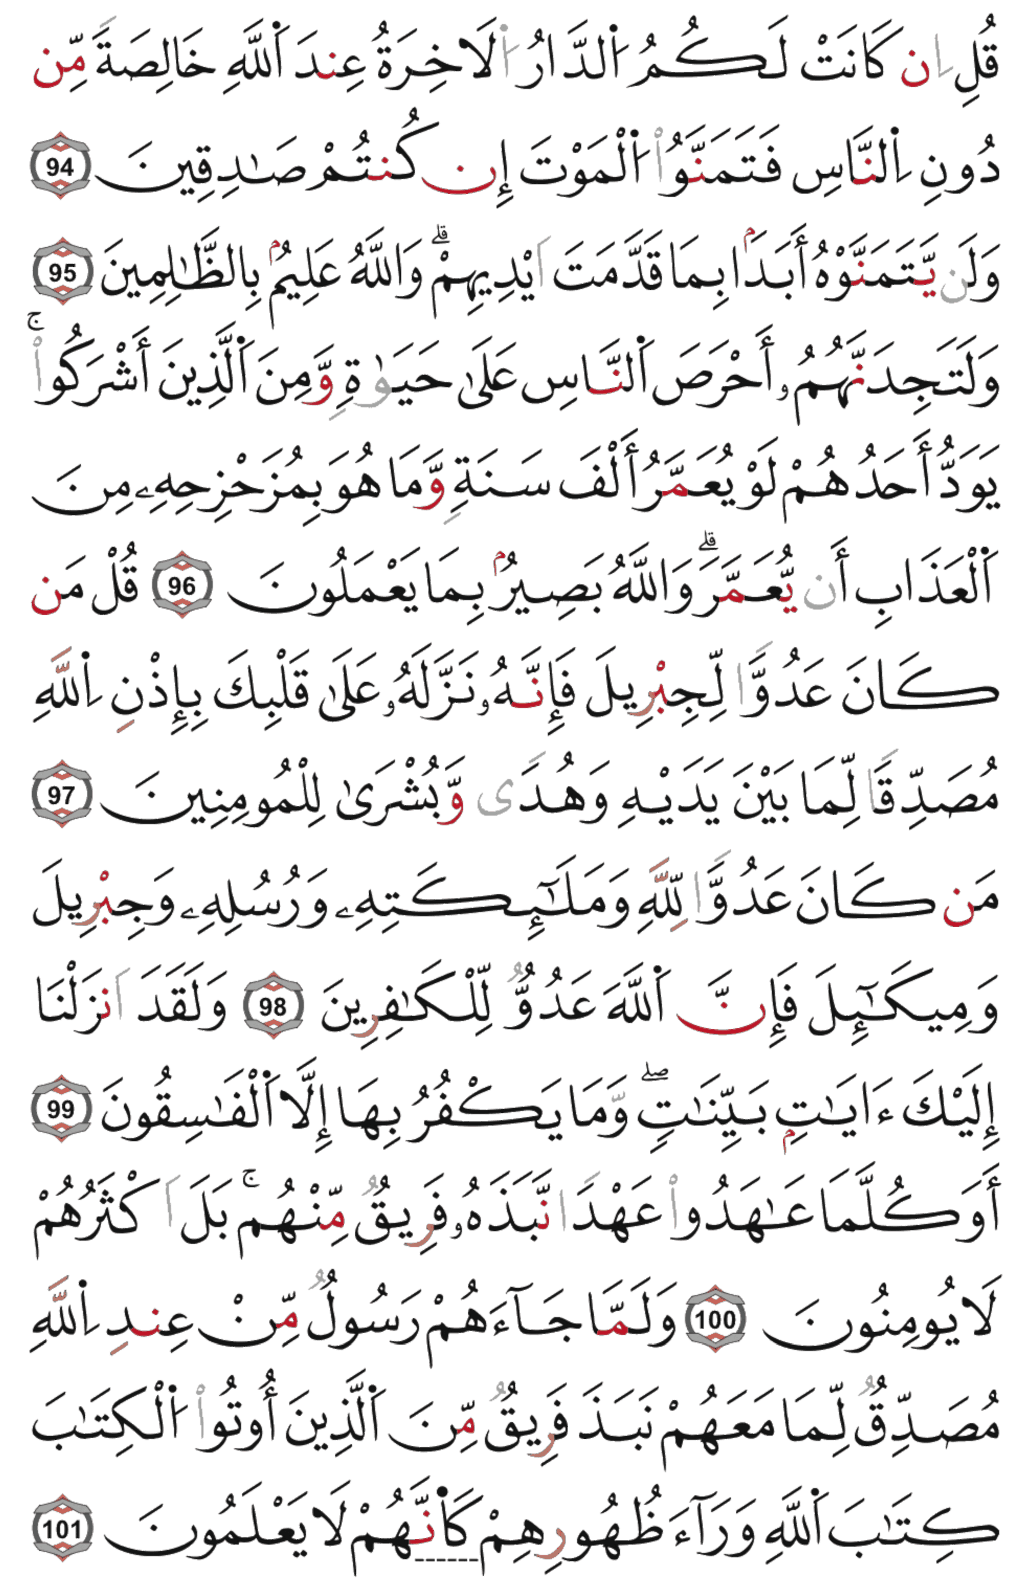 قُلِ اِن كَانَتْ لَكُمُ اُ۬لدَّارُ اُ۬لَاخِرَةُ عِندَ اَ۬للَّهِ خَالِصَةٗ مِّن
دُونِ اِ۬لنَّاسِ فَتَمَنَّوُاْ اُ۬لْمَوْتَ إِن كُنتُمْ صَٰدِقِينَ 94
وَلَن يَّتَمَنَّوْهُ أَبَدَۢا بِمَا قَدَّمَتَ اَيْدِيهِمْۗ وَاللَّهُ عَلِيمُۢ بِالظَّٰلِمِينَ 95
وَلَتَجِدَنَّهُمُۥ أَحْرَصَ اَ۬لنَّاسِ عَلَىٰ حَيَوٰةٖ وَّمِنَ اَ۬لَّذِينَ أَشْرَكُواْۚ
يَوَدُّ أَحَدُهُمْ لَوْ يُعَمَّرُ أَلْفَ سَنَةٖ وَّمَا هُوَ بِمُزَحْزِحِهِۦ مِنَ
اَ۬لْعَذَابِ أَن يُّعَمَّرَۗ وَاللَّهُ بَصِيرُۢ بِمَا يَعْمَلُونَ 96 قُلْ مَن
كَانَ عَدُوّٗا لِّجِبْرِيلَ فَإِنَّهُۥ نَزَّلَهُۥ عَلَىٰ قَلْبِكَ بِإِذْنِ اِ۬للَّهِ
مُصَدِّقٗا لِّمَا بَيْنَ يَدَيْهِ وَهُدٗى وَّبُشْرَىٰ لِلْمُومِنِينَ 97
مَن كَانَ عَدُوّٗا لِّلَّهِ وَمَلَٰٓئِكَتِهِۦ وَرُسُلِهِۦ وَجِبْرِيلَ
وَمِيكَٰٓئِلَ فَإِنَّ اَ۬للَّهَ عَدُوّٞ لِّلْكَٰفِرِينَ 98 وَلَقَدَ اَنزَلْنَا
إِلَيْكَ ءَايَٰتِۢ بَيِّنَٰتٖۖ وَمَا يَكْفُرُ بِهَا إِلَّا اَ۬لْفَٰسِقُونَ 99
أَوَكُلَّمَا عَٰهَدُواْ عَهْدٗا نَّبَذَهُۥ فَرِيقٞ مِّنْهُمۚ بَلَ اَكْثَرُهُمْ
لَا يُومِنُونَ 100 وَلَمَّا جَآءَهُمْ رَسُولٞ مِّنْ عِندِ اِ۬للَّهِ
مُصَدِّقٞ لِّمَا مَعَهُمْ نَبَذَ فَرِيقٞ مِّنَ اَ۬لَّذِينَ أُوتُواْ اُ۬لْكِتَٰبَ
كِتَٰبَ اَ۬للَّهِ وَرَآءَ ظُهُورِهِمْ كَأَنَّهُمْ لَا يَعْلَمُونَ 101